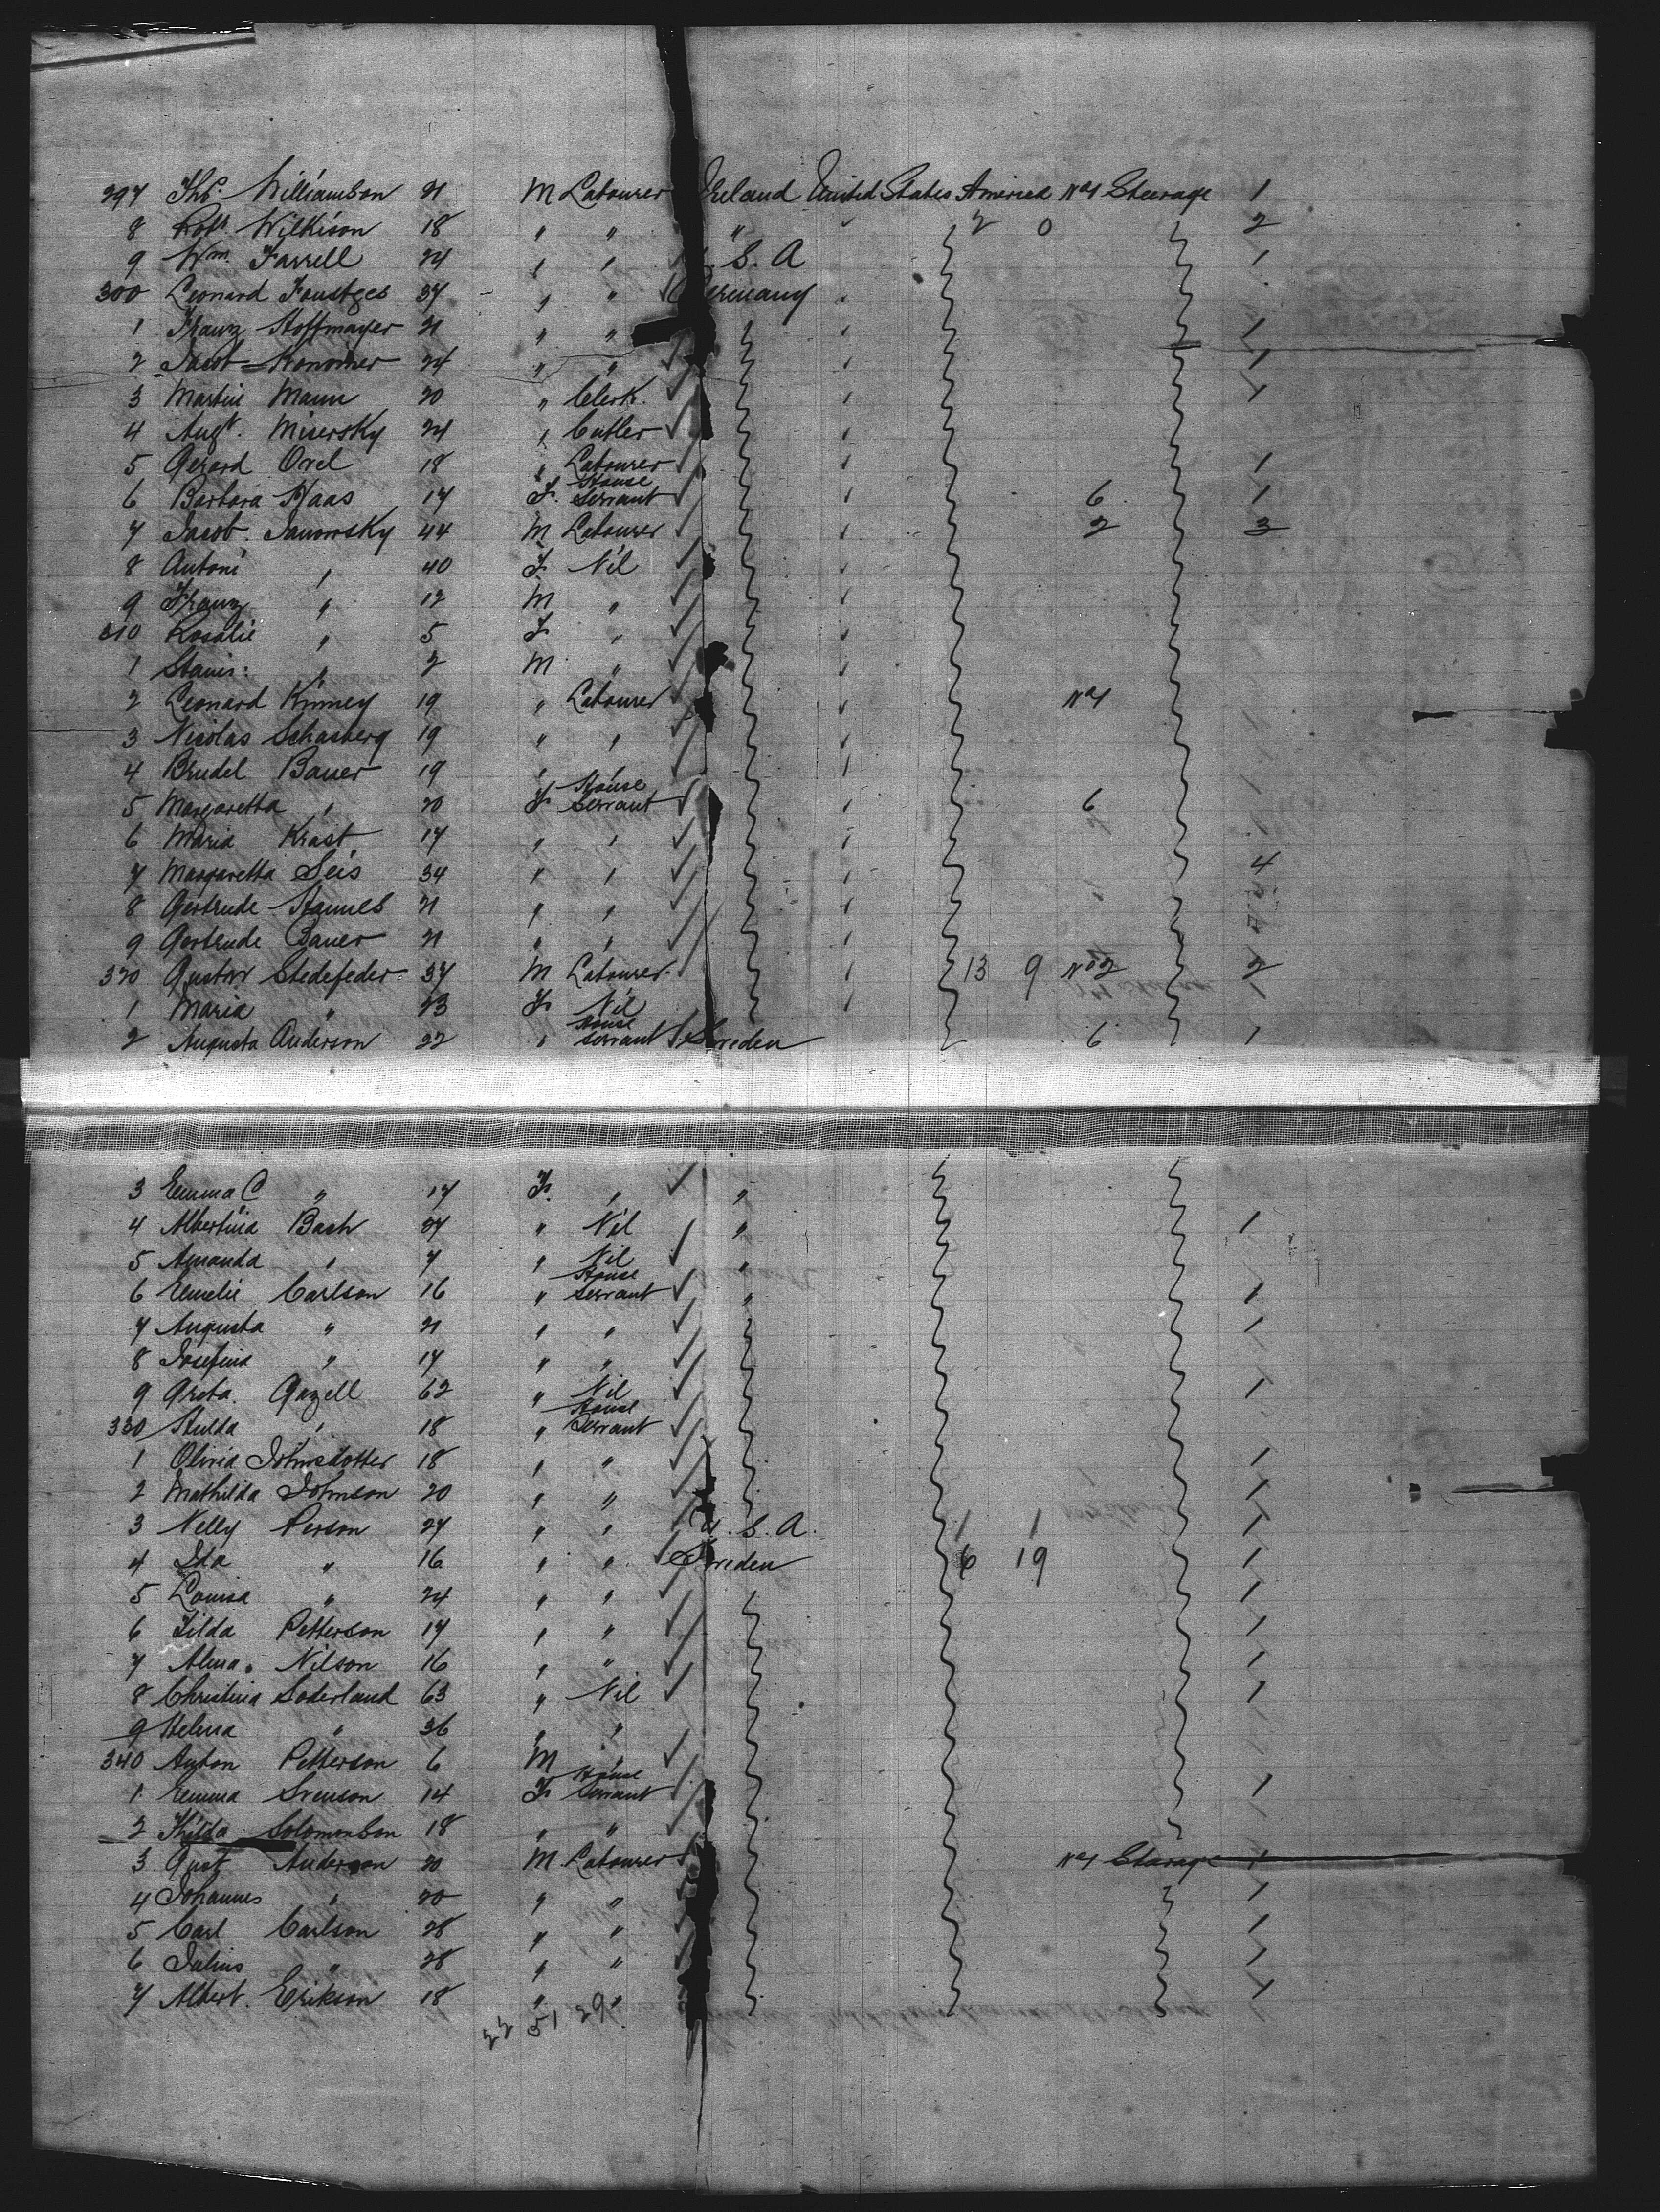 297 Thos. Williamson 21 M Labourer Ireland United States America No 1 Steerage 1
8 Robt. Wilkison 18 " " " 2 0 2
9 Wm. Farrell 24 " " U. S. A 1
300 Leonard Foustges 37 " " Germany
1 Franz Hoffmayer 21 " " 1
2 Jacob 24 " " 1
3 Martin Mann 20 " Clerk 1
4 Augt. Misersky 24 " Cutler
5 Gerard Orel 18 " Labourer 1
6 Barbara Haas 17 F. House Servant 6 1
7 Jacob Janowsky 44 M Labourer 2 3
8 Antoni " 40 F. Nil
9 Franz " 12 M "
310 Rosalie " 5 F "
1 Stanis: " 2 M "
2 Leonard Kinney 19 " Labourer No 1
3 Nicolas Schasberg 19 " "
4 Brudel Bauer 19 " "
5 Margaretta " 20 F House Servant 6
6 Maria Krast 17 " "
7 Margaretta Seis 34 " " 4
8 Gertrude 21 " "
9 Gertrude Bauer 21 " "
320 Gustav Stedefeder 37 M Labourer 13 9 No 2 2
1 Maria " 23 F Nil
2 Augusta Anderson 22 " House Servant Sweden 6 1
3 Emma C " 17 F. " "
4 Albertina Bach 27 " Nil " 1
5 Amanda " 7 " Nil "
6 Emelie Carlson 16 " House Servant " 1
7 Augusta " 21 " " " 1
8 Josefina " 17 " "
9 Greta Gazell 62 " Nil 1
330 Hulda " 18 " House Servant
1 Olivia Johnsdotter 18 " " 1
2 Mathilda Johnson 20 " " 1
3 Nelly Person 27 " " U. S. A. 1 1 1
4 Ida " 16 " " Sweden 6 19 1
5 Louisa " 24 " " 1
6 Tilda Petterson 17 " " 1
7 Alma Nilson 16 " " 1
8 Christina Soderland 63 " Nil 1
9 Helena " 36 " "
340 Anton Petterson 6 M "
1 Emma Svenson 14 F House Servant 1
2 Thilda Solomonson 18 " "
3 Gust Anderson 20 M Labourer No 1 Steerage 1
4 Johannes " 20 " " 1
5 Carl Carlson 28 " " 1
6 Julius " 28 " " 1
7 Albert Erikson 18 " " 1
22 51 29